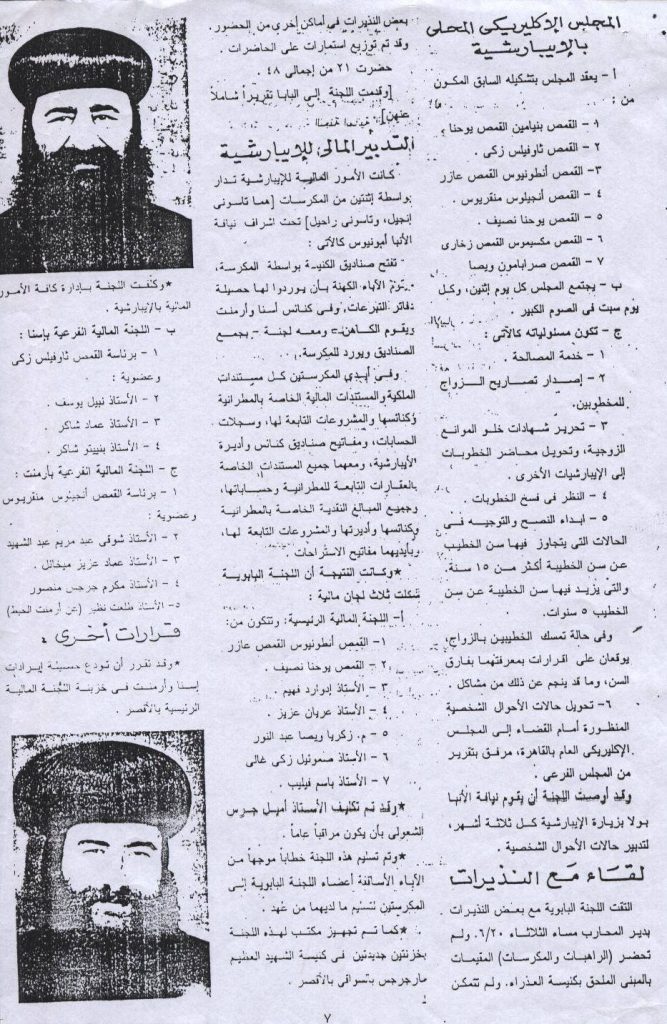 المجلس الإكليريكى المحلى
بالإيبارشية
أ - يعقد المجلس بتشكيله السابق المكون
من :
١ - القمص بنيامين القمص يوحنا
٢ - القمص ثاوفيلس زكى .
٣- القمص أنطونيوس القمص عازر
٤ - القمص أنجيلوس منقريوس .
٥ - القمص يوحنا نصيف .
٦ - القمص مكسيموس القمص زخارى
٧ - القمص صرابامون ويصا
ب - يجتمع المجلس كل يوم إثنين، وكل
يوم سبت فى الصوم الكبير .
ج - تكون مسئولياته كالآتى :
١ - خدمة المصالحة .
٢ - إصدار تصاريح الزواج
للمخطوبين.
٣ - تحرير شهادات خلو الموانع
الزوجية، وتحويل محاضر الخطوبات
إلى الإيبارشيات الأخرى .
٤ - النظر فى فسخ الخطوبات .
٥ - ابداء النصح والتوجيه فى
الحالات التى يتجاوز فيها سن الخطيب
عن سن الخطيبة أكثر من ١٥ سنة.
والتى يزيد فيها سن الخطيبة عن سن
الخطيب ٥ سنوات.
وفى حالة تمسك الخطيبين بالزواج،
يوقعان على اقرارات بمعرفتهما بفارق
السن، وما قد ينجم عن ذلك من مشاكل .
٦- تحويل حالات الأحوال الشخصية
المنظورة أمام القضاء إلى المجلس
الإكليريكى العام بالقاهرة، مرفق بتقرير
من المجلس الفرعى .
وقد أوصت اللجنة أن يقوم نيافة الأنبا
بولا بزيارة الإيبارشية كل ثلاثة أشهر،
لتدبير حالات الأحوال الشخصية .
لقاء مع النذيرات
التقت اللجنة البابوية مع بعض النذيرات
بدير المحارب مساء الثلاثاء ٦/٢٠. ولم
تحضر (الراهبات والمكرسات) المقيمات
بالمبنى الملحق بكنيسة العذراء. ولم تتمكن
بعض النذيرات فى أماكن أخرى من الحضور .
وقد تم توزيع استمارات على الحاضرات .
حضرت ٢١ من إجمالى ٤٨ .
[وقدمت اللجنة إلى البابا تقريراً شاملاً
عنهن].
التدبير المالى للإيبارشية
كانت الأمور المالية للإيبارشية تدار
بواسطة إثنتين من المكرسات [هما تاسونى
إنجيل، وتاسونى راحيل] تحت اشراف نيافة
الأنبا أمونيوس كالآتى :
تفتح صناديق الكنيسة بواسطة المكرسة،
تلزم الآباء الكهنة بأن يوردوا لها حصيلة
دفاتر التبرعات. وفى كنائس أسنا وأرمنت
ويقوم الكاهن - ومعه لجنة - بجمع
الصناديق ويورد للمكرسة.
وفى أيدى المكرستين كل مستندات
الملكية والمستندات المالية الخاصة بالمطرانية
وكنائسها والمشروعات التابعة لها، وسجلات
الحسابات، ومفاتيح صناديق كنائس وأديرة
الأيبارشية، ومعهما جميع المستندات الخاصة
بالعقارات التابعة للمطرانية وحساباتها،
وجميع المبالغ النقدية الخاصة بالمطرانية
وكنائسها وأديرتها والمشروعات التابعة لها،
وبأيديهما مفاتيح الاستراحات .
★وكانت النتيجة أن اللجنة البابوية
شكلت ثلاث لجان مالية :
أ- اللجنة المالية الرئيسية: وتتكون من:
١- القمص أنطونيوس القمص عازر
٢ - القمص يوحنا نصيف .
٣ - الأستاذ إدوارد فهيم .
٤ - الأستاذ عريان عزيز .
٥ - م. زكريا ويصا عبد النور
٦ - الأستاذ صموئيل زكى غالى
٧ - الأستاذ باسم فيليب .
★وقد تم تكليف الأستاذ أميل جرس
الشعولى بأن يكون مراقباً عاماً .
★وتم تسليم هذه اللجنة خطاباً موجهاً من
الآباء الأساقفة أعضاء اللجنة البابوية إلى
المكرستين لتسليم ما لديهما من عهد .
★كما تم تجهيز مكتب لهذه اللجنة
بخزنتين جديدتين فى كنيسة الشهيد العظيم
مارجرجس بالأقصر .
★وكلفت اللجنة بإدارة كافة الأمور
المالية بالإيبارشية .
ب - اللجنة المالية الفرعية بإسنا :
١ - برئاسة القمص ثاوفيلس زكى
وعضوية :
٢ - الأستاذ نبيل يوسف .
٣ - الأستاذ عماد شاكر .
٤ - الأستاذ شاكر .
ج - اللجنة المالية الفرعية بأرمنت :
١ - برئاسة القمص أنجيلوس منقريوس
وعضوية :
٢ - الأستاذ شوقى عبد مريم عبد الشهيد
٣ - الأستاذ عماد عزيز ميخائل .
٤ - الأستاذ مكرم جرجس منصور
٥- الأستاذ طلعت نظير (عن أرمنت الحيط)
قرارات أخرى
★وقد تقرر أن تودع حصيلة إيرادات
إسنا وأرمنت فى خزينة اللجنة المالية
الرئيسية بالأقصر .
٧